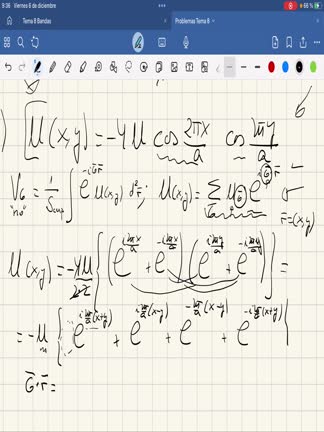 9:36 Viernes 6 de diciembre
66 %
Tema 8 Bandas
Problemas Tema 8
) [U(x,y) = -4U cos 2πx/a cos 2πy/a
V_G = 1/S_cup ∫ e^{-iḠr̄} U(x,y) d²r̄ ; U(x,y) = Σ U_G e^{iḠr̄}
"no"
r̄=(x,y)
U(x,y) = -4U/2·2 { (e^{i2πx/a} + e^{-i2πx/a})(e^{i2πy/a} + e^{-i2πy/a}) } =
= -U { e^{i2π/a(x+y)} + e^{i2π/a(x-y)} + e^{-i2π/a(x-y)} + e^{-i2π/a(x+y)} }
Ḡ·r̄ =